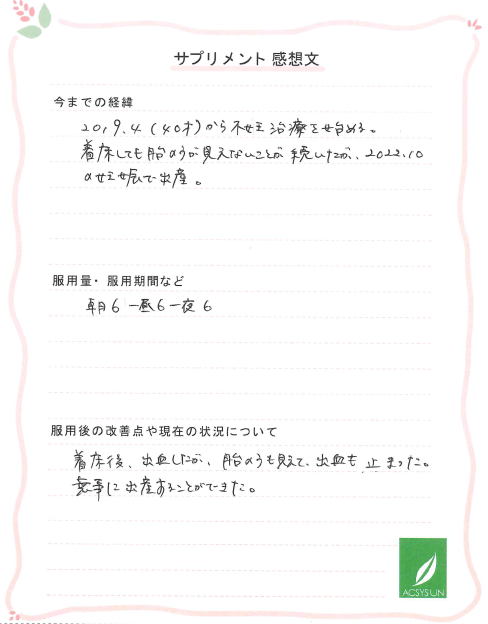 サプリメント 感想文
今までの経緯
2019.4(40才)から不妊治療を始める。
着床しても胎のうが見えないことが続いたが、2022.10
の妊娠で出産。
服用量・服用期間など
朝6-昼6-夜6
服用後の改善点や現在の状況について
着床後、出血したが、胎のうも見えて、出血も止まった。
無事に出産することができた。
ACSYSUN